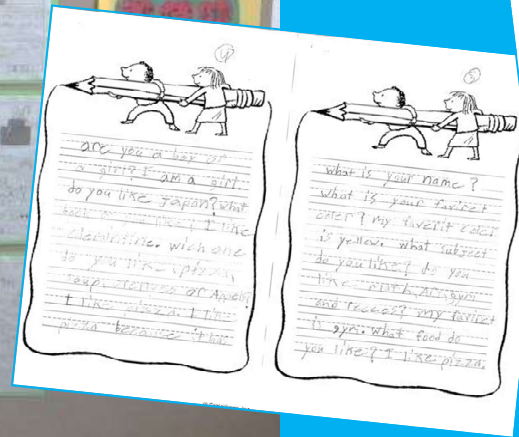 4
are you a boy or
a girl? I am a girl
do you like Japan? what
book do you like? I like
clementine. wich one
do you like, pizza,
soup,
I like pizza. I like
pizza because it has
5
what is your name?
what is your favirct
coler? my faverit coler
is yellow. what subject
do you like? do you
like math, Art, gym
and recces? my faviret
is gym. what food do
you like? I like pizza.